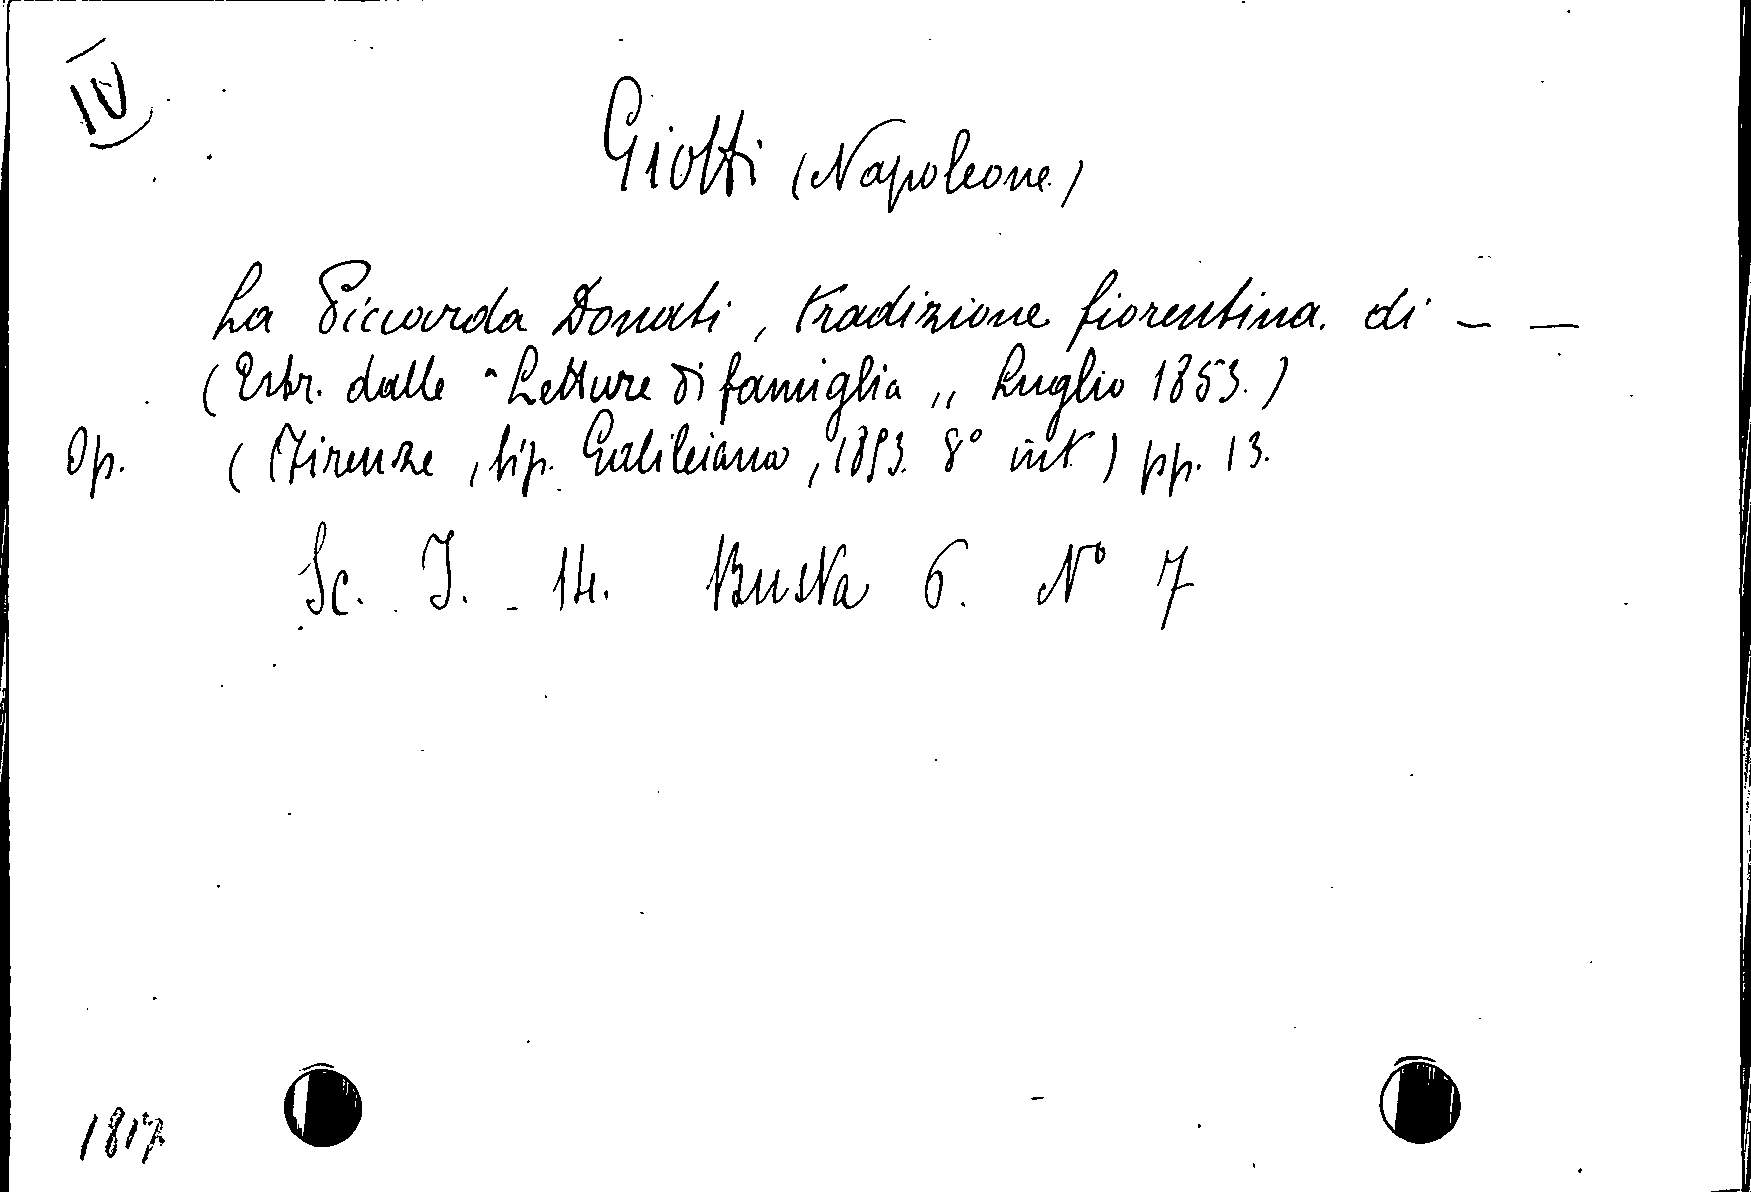 IV
Giotti (Napoleone)
La Piccarda Donati, tradizione fiorentina. di — —
(Estr. dalle "Letture di famiglia „ Luglio 1853.)
Op. (Firenze, tip. Galileiana, 1853. 8° int) pp. 13.
Sc. I. - 14. Busta 6. N° 7
1817